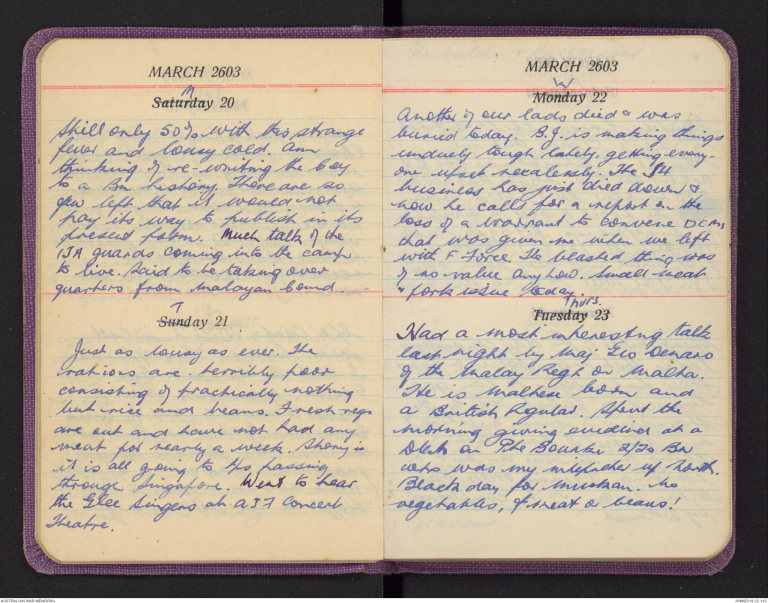 MARCH 2603
M
Saturday 20
Still only 50% with this strange
fever and lousy cold. Am
thinking of re-writing the Coy
to a Bn history. There are so
few left that it would not
pay its way to publish in its
present form. Much talk of the
IJA guards coming into the camp
to live. Said to be taking over
quarters from Malayan Comd.
T
Sunday 21
Just as lousy as ever. The
rations are terribly poor
consisting of practically nothing
but rice and beans. Fresh vegs
are out and have not had any
meat for nearly a week. Story is
it is all going to Tps passing
through Singapore. Went to hear
the Glee Singers at AIF Concert
Theatre.
MARCH 2603
W
Monday 22
Another of our lads died & was
buried today. B.J. is making things
unduly tough lately, getting every-
one upset needlessly. The S4
business has just died down &
now he calls for a report on the
loss of a Warrant to convene DCMs
that was given me when we left
with F Force. The blasted thing was
of no value anyhow. Small meat
& pork issue today.
Thurs.
Tuesday 23
Had a most interesting talk
last night by Maj Geo
of the Malay Regt on Malta.
He is Maltese born and
a British Regular. Spent the
morning giving evidence at a
on Pte Bourke 2/20 Bn
who was my interpreter up North.
Black day for. No
vegetables, meat or beans!
AUSTRALIAN WAR MEMORIAL